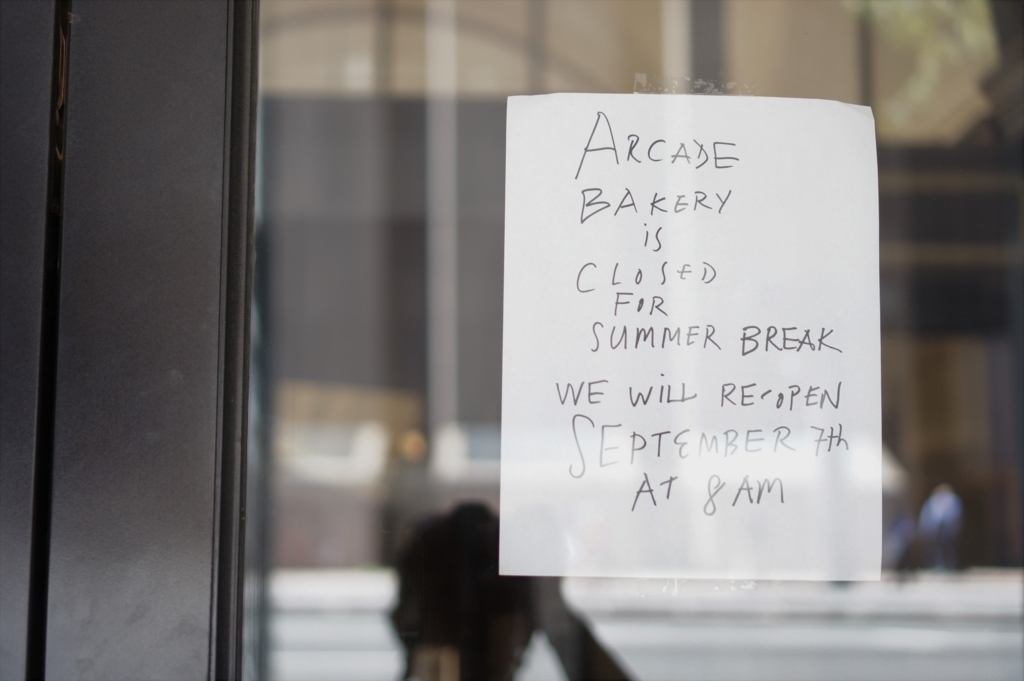 ARCADE
BAKERY
iS
CLOSED
FOR
SUMMER BREAK
WE WILL RE-OPEN
SEPTEMBER 7th
AT 8 AM